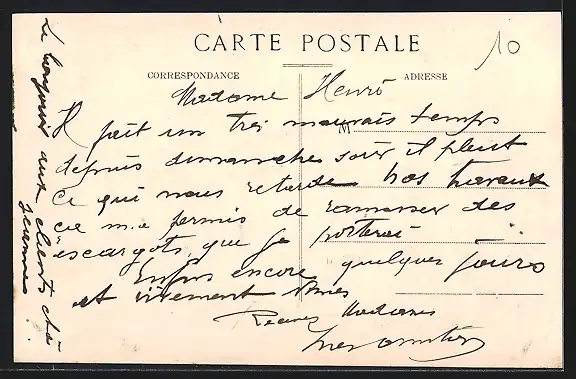 10
CARTE POSTALE
CORRESPONDANCE
ADRESSE
Madame Henri
M
Il fait un très mauvais temps
depuis dimanche soir il pleut
ce qui nous retarde nos travaux
ce m'a permis de ramasser des
escargots que je porterai
Enfin encore quelques jours
et vivement
Recevez Madame
Le bonjour aux clients